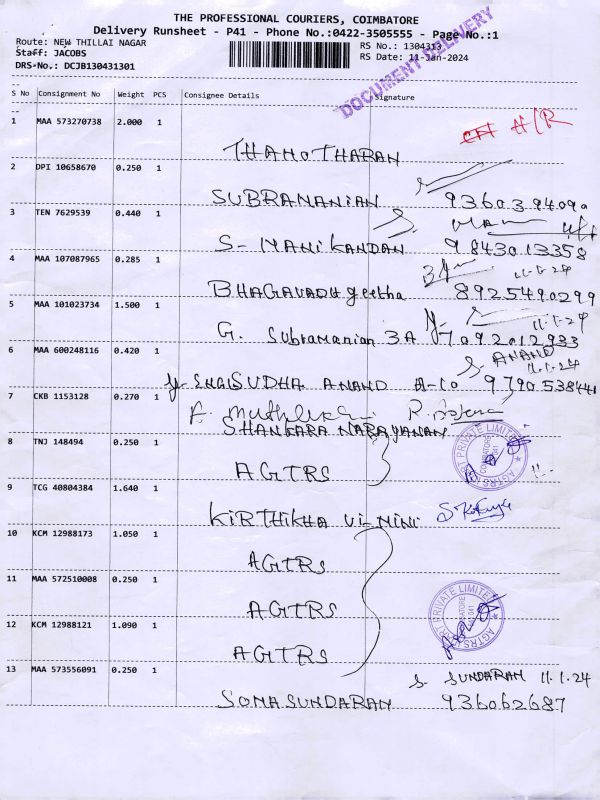 THE PROFESSIONAL COURIERS, COIMBATORE
Delivery Runsheet - P41 - Phone No.:0422-3505555 - Page No.:1
Route: NEW THILLAI NAGAR
RS No.: 1304313
Staff: JACOBS
RS Date: 11-Jan-2024
DRS-No.: DCJB130431301
DOCUMENT DELIVERY
S No Consignment No Weight PCS Consignee Details Signature
1 MAA 573270738 2.000 1
H/R
THAMOTHARAN
2 DPI 10658670 0.250 1
SUBRAMANIAN
3 TEN 7629539 0.440 1
S- MANIKANDAN 9843013358
4 MAA 107087965 0.285 1
11-1-24
BHAGAVADH geetha 8925490299
5 MAA 101023734 1.500 1
11-1-24
G. Subramanian 3A 7092012933
6 MAA 600248116 0.420 1
S. ANAND
11.1.24
SUDHA ANAND A-10 9790538441
7 CKB 1153128 0.270 1
SHANKARA NARAYANAN
8 TNJ 148494 0.250 1
AGTRS
9 TCG 40804384 1.640 1
KIRTHIKHA
10 KCM 12988173 1.050 1
AGTRS
11 MAA 572510008 0.250 1
AGTRS
12 KCM 12988121 1.090 1
AGTRS
13 MAA 573556091 0.250 1
S. SUNDARAM 11.1.24
SOMASUNDARAM 936062687